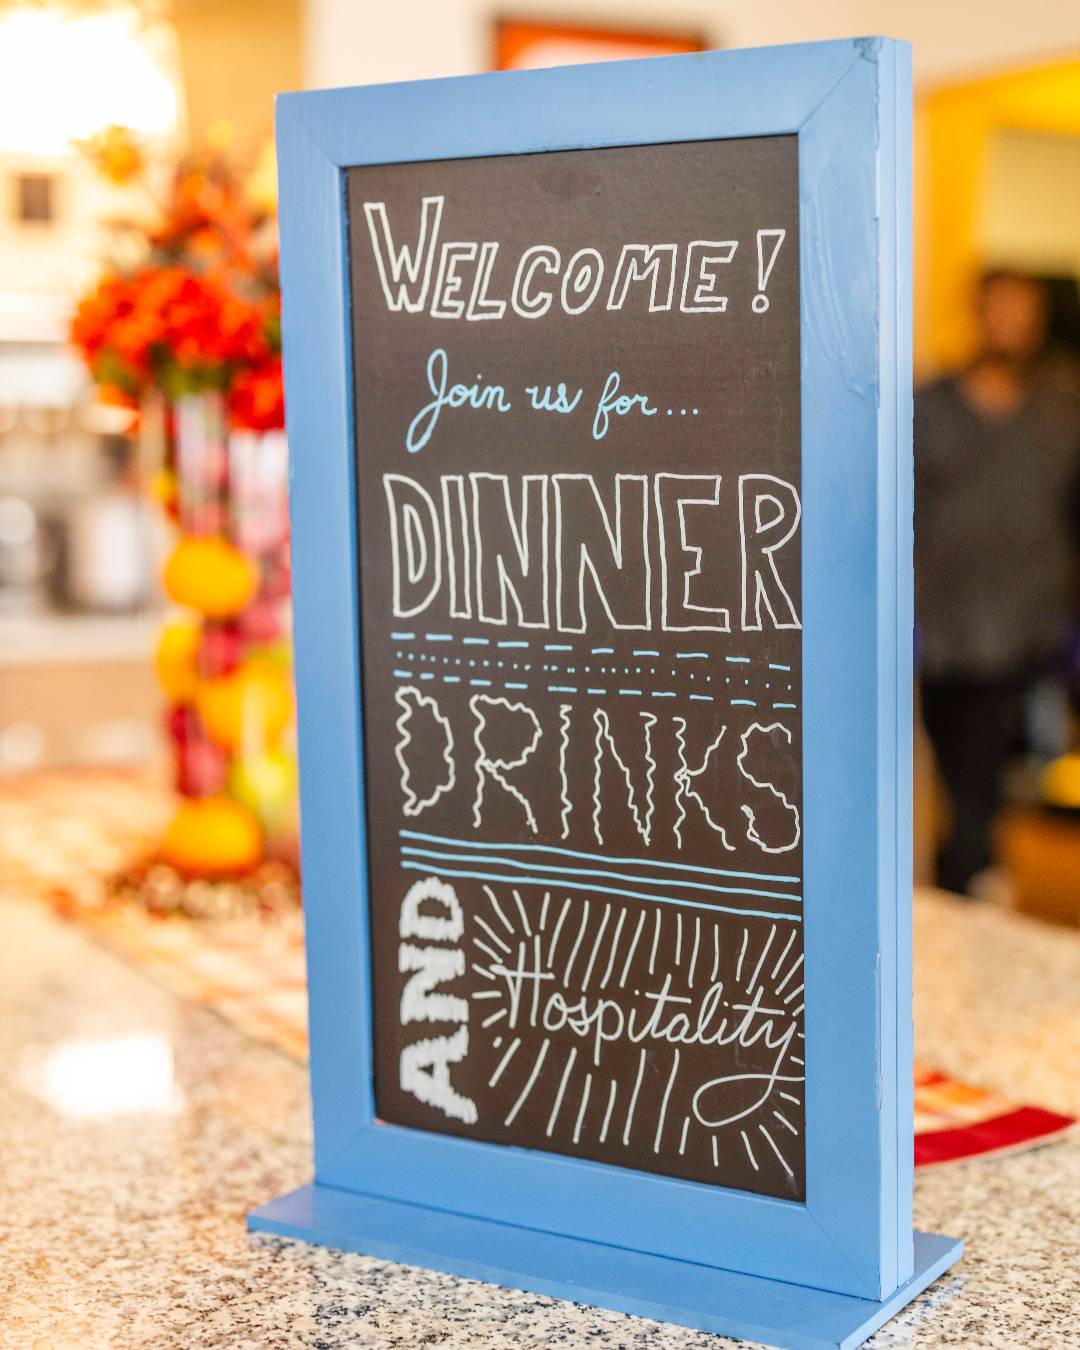 WELCOME!
Join us for...
DINNER
DRINKS
AND
Hospitality